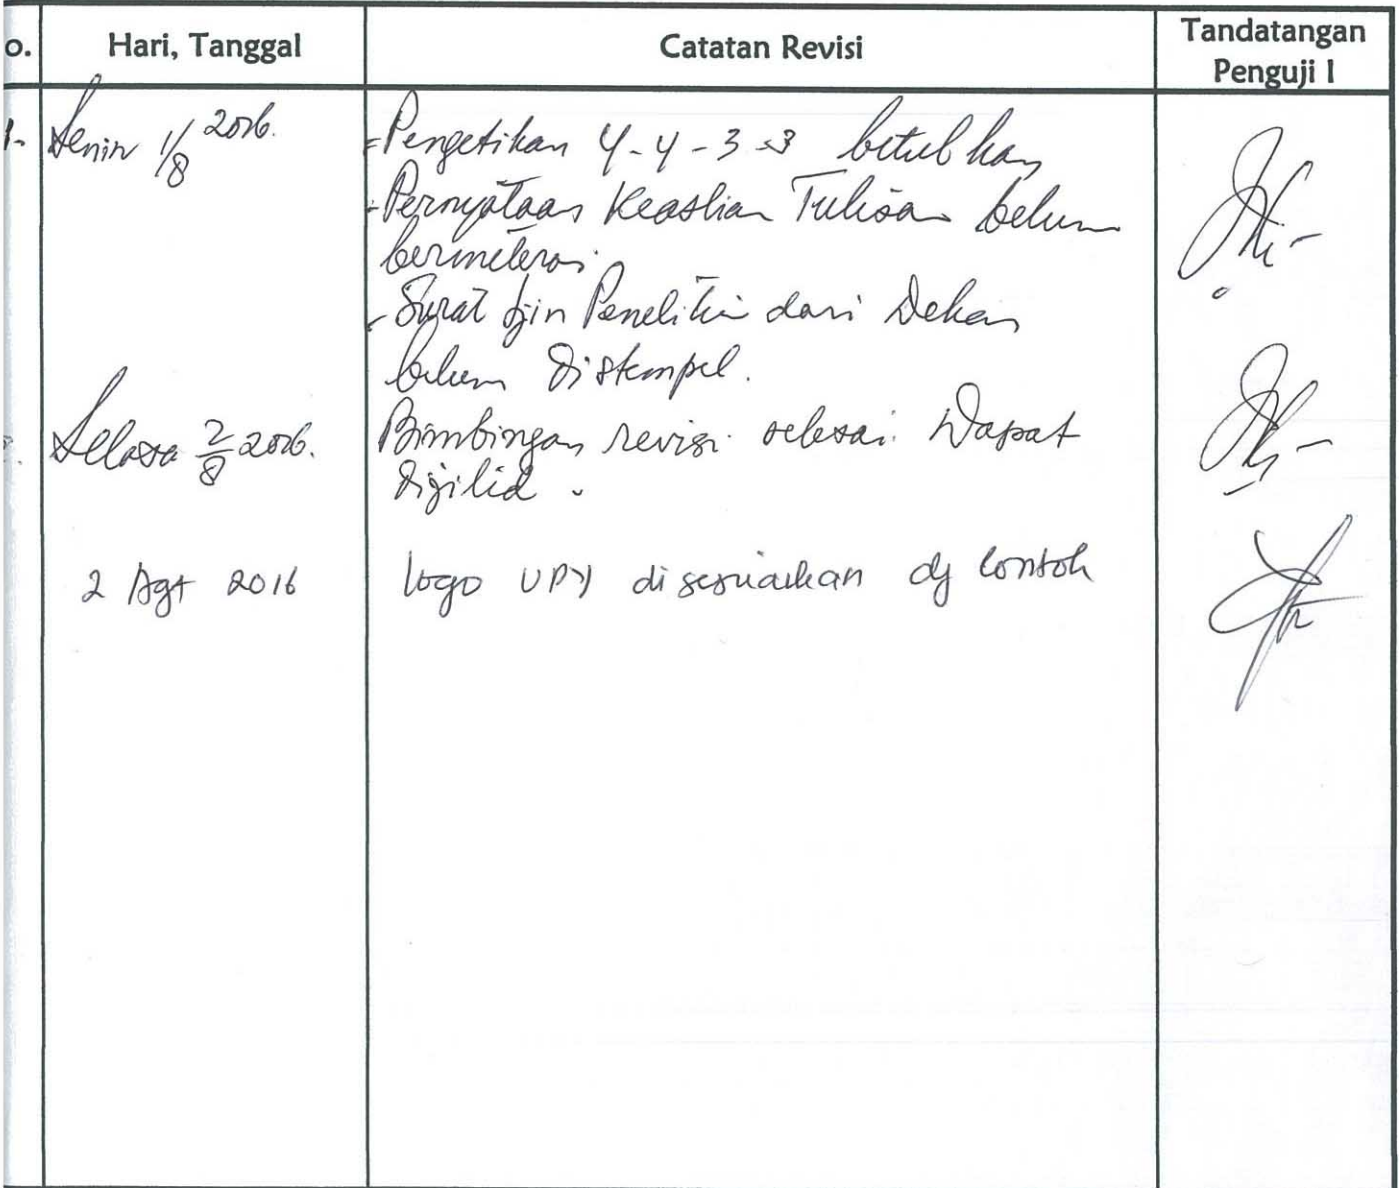 o. Hari, Tanggal Catatan Revisi Tandatangan
Penguji I
1. Senin 1/8 2016. - Pengetikan 4-4-3-3 betulkan
- Pernyataan Keaslian Tulisan belum
bermeterai.
- Surat Ijin Penelitian dari Dekan
belum distempel.
Selasa 2/8 2016. Bimbingan revisi selesai. Dapat
dijilid.
2 Agt 2016 Logo UPY disesuaikan dg contoh